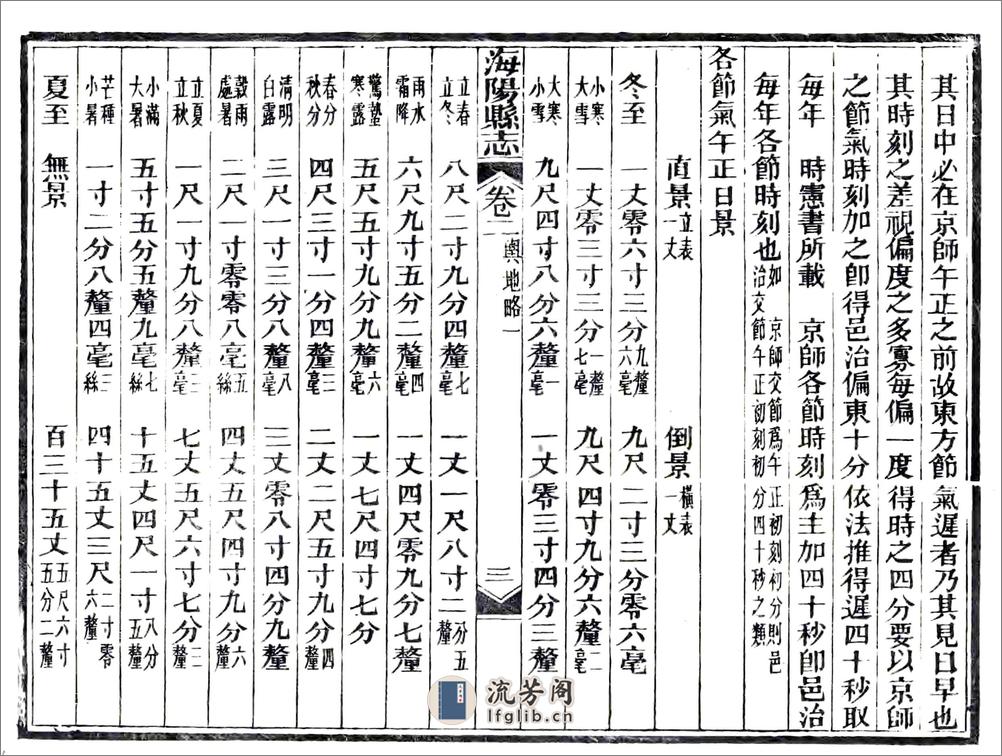 其日中必在京師午正之前故東方節氣遲者乃其見日早也
其時刻之差視偏度之多寡每偏一度得時之四分要以京師
之節氣時刻加之卽得邑治偏東十分依法推得遲四十秒取
每年 時憲書所載 京師各節時刻爲主加四十秒卽邑治
每年各節時刻也如 京師交節爲午正初刻初分則邑治交節午正初刻初分四十秒之類
各節氣午正日景
直景立表一丈 倒景橫表一丈
冬至 一丈零六寸三分九釐六毫 九尺二寸三分零六毫
小寒大雪 一丈零三寸三分一釐七毫 九尺四寸九分六釐二毫
大寒小雪 九尺四寸八分六釐一毫 一丈零三寸四分三釐
海陽縣志 卷二 輿地略一 三
立春立冬 八尺二寸九分四釐七毫 一丈一尺八寸二分五釐
雨水霜降 六尺九寸五分二釐四毫 一丈四尺零九分七釐
驚蟄寒露 五尺五寸九分九釐六毫 一丈七尺四寸七分
春分秋分 四尺三寸一分四釐三毫 二丈二尺五寸分四釐
清明白露 三尺一寸三分三釐八毫 三丈零八寸四分九釐
穀雨處暑 二尺一寸零零八毫五絲 四丈五尺四寸九分六釐
立夏立秋 一尺一寸九分八釐三毫 七丈五尺六寸七分三釐
小滿大暑 五寸五分五釐九毫七絲 十五丈四尺一寸八分五釐
芒種小暑 一寸二分八釐四毫三絲 四十五丈三尺二寸零六釐
夏至 無景 百三十五丈五尺六寸五分二釐
流芳阁
lfglib.cn